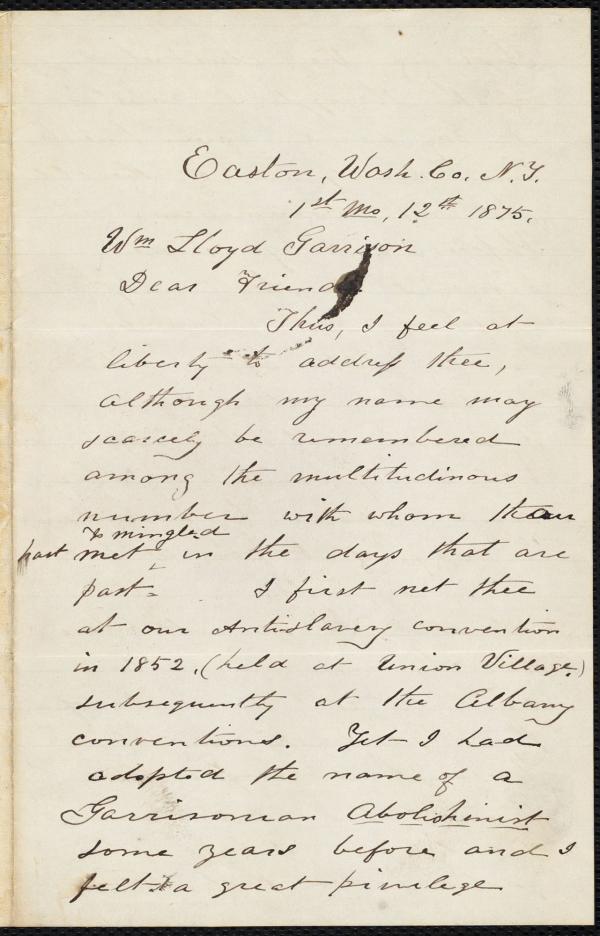 Easton, Wash. Co. N.Y.
1st Mo, 12th 1875.
Wm Lloyd Garrison
Dear Friend
Thus, I feel at
liberty to address thee,
although my name may
scarcely be remembered
among the multitudinous
number with whom thou
& mingled
hast met in the days that are
past. I first met thee
at our Antislavery convention
in 1852, (held at Union Village)
subsequently at the Albany
conventions. Yet I had
adopted the name of a
Garrisonian Abolishinist
some years before and I
felt a great privilege